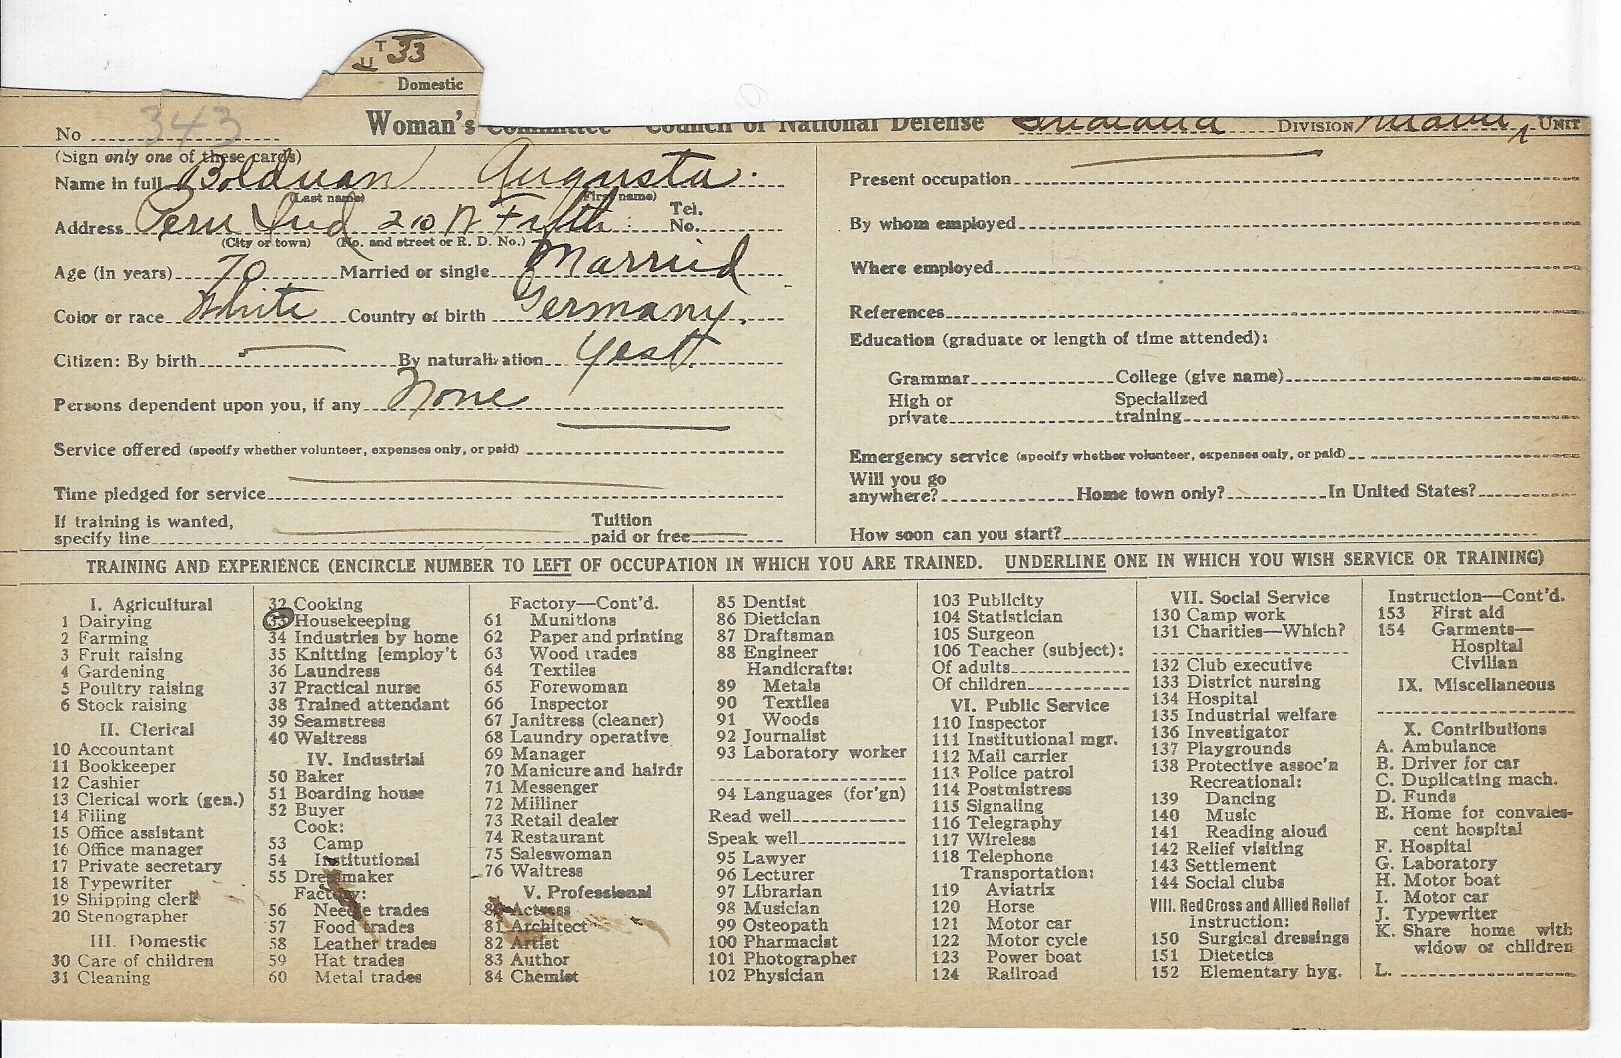 T 33
U
Domestic
No 343 Woman's Committee Council of National Defense Indiana DIVISION Miami UNIT
(Sign only one of these cards)
Name in full Bolduan Augusta.
(Last name) (First name)
Address Peru Ind 210 N Fifth Tel. No.
(City or town) (No. and street or R. D. No.)
Age (in years) 70 Married or single Married
Color or race White Country of birth Germany.
Citizen: By birth By naturalization Yes
Persons dependent upon you, if any None
Service offered (specify whether volunteer, expenses only, or paid)
Time pledged for service
If training is wanted, specify line Tuition paid or free
Present occupation
By whom employed
Where employed
References
Education (graduate or length of time attended):
Grammar College (give name)
High or private Specialized training
Emergency service (specify whether volunteer, expenses only, or paid)
Will you go anywhere? Home town only? In United States?
How soon can you start?
TRAINING AND EXPERIENCE (ENCIRCLE NUMBER TO LEFT OF OCCUPATION IN WHICH YOU ARE TRAINED. UNDERLINE ONE IN WHICH YOU WISH SERVICE OR TRAINING)
I. Agricultural
1 Dairying
2 Farming
3 Fruit raising
4 Gardening
5 Poultry raising
6 Stock raising
II. Clerical
10 Accountant
11 Bookkeeper
12 Cashier
13 Clerical work (gen.)
14 Filing
15 Office assistant
16 Office manager
17 Private secretary
18 Typewriter
19 Shipping clerk
20 Stenographer
III. Domestic
30 Care of children
31 Cleaning
32 Cooking
33 Housekeeping
34 Industries by home
35 Knitting [employ't
36 Laundress
37 Practical nurse
38 Trained attendant
39 Seamstress
40 Waitress
IV. Industrial
50 Baker
51 Boarding house
52 Buyer
Cook:
53 Camp
54 Institutional
55 Dressmaker
Factory:
56 Needle trades
57 Food trades
58 Leather trades
59 Hat trades
60 Metal trades
Factory—Cont'd.
61 Munitions
62 Paper and printing
63 Wood trades
64 Textiles
65 Forewoman
66 Inspector
67 Janitress (cleaner)
68 Laundry operative
69 Manager
70 Manicure and hairdr
71 Messenger
72 Milliner
73 Retail dealer
74 Restaurant
75 Saleswoman
76 Waitress
V. Professional
80 Actress
81 Architect
82 Artist
83 Author
84 Chemist
85 Dentist
86 Dietician
87 Draftsman
88 Engineer
Handicrafts:
89 Metals
90 Textiles
91 Woods
92 Journalist
93 Laboratory worker
94 Languages (for'gn)
Read well
Speak well
95 Lawyer
96 Lecturer
97 Librarian
98 Musician
99 Osteopath
100 Pharmacist
101 Photographer
102 Physician
103 Publicity
104 Statistician
105 Surgeon
106 Teacher (subject):
Of adults
Of children
VI. Public Service
110 Inspector
111 Institutional mgr.
112 Mail carrier
113 Police patrol
114 Postmistress
115 Signaling
116 Telegraphy
117 Wireless
118 Telephone
Transportation:
119 Aviatrix
120 Horse
121 Motor car
122 Motor cycle
123 Power boat
124 Railroad
VII. Social Service
130 Camp work
131 Charities—Which?
132 Club executive
133 District nursing
134 Hospital
135 Industrial welfare
136 Investigator
137 Playgrounds
138 Protective assoc'n
Recreational:
139 Dancing
140 Music
141 Reading aloud
142 Relief visiting
143 Settlement
144 Social clubs
VIII. Red Cross and Allied Relief
Instruction:
150 Surgical dressings
151 Dietetics
152 Elementary hyg.
Instruction—Cont'd.
153 First aid
154 Garments—
Hospital
Civilian
IX. Miscellaneous
X. Contributions
A. Ambulance
B. Driver for car
C. Duplicating mach.
D. Funds
E. Home for convales-
cent hospital
F. Hospital
G. Laboratory
H. Motor boat
I. Motor car
J. Typewriter
K. Share home with
widow or children
L.